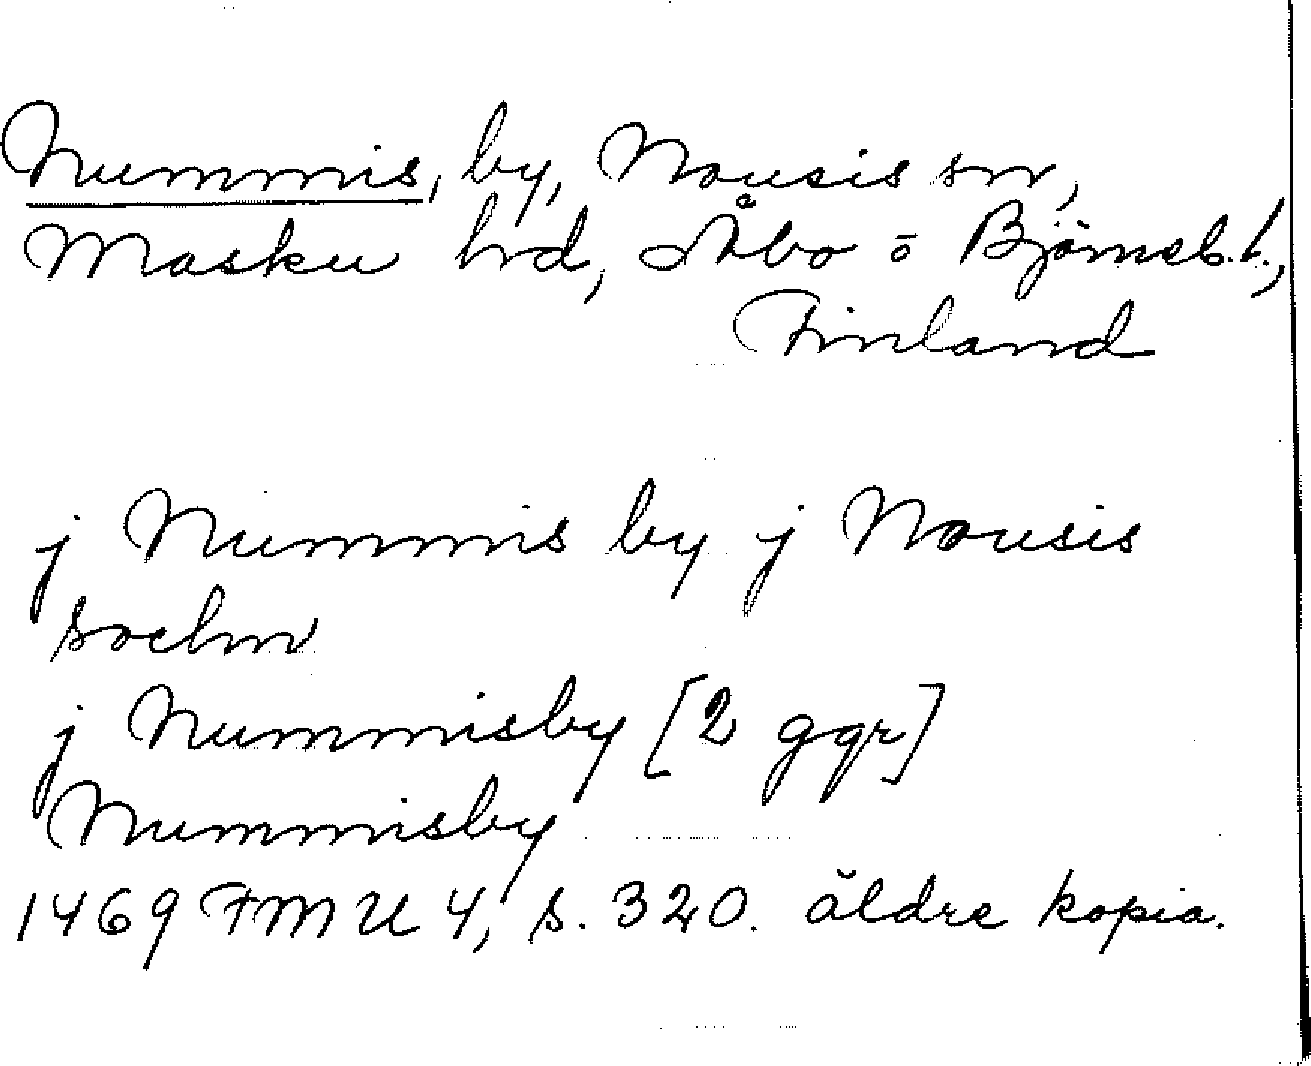 Nummis, by, Nousis sn,
Masku hrd, Åbo o Björneb. l.,
Finland
j Nummis by j Nousis
sochn
j Nummisby [2 ggr]
Nummisby
1469 FMU 4, s. 320. äldre kopia.